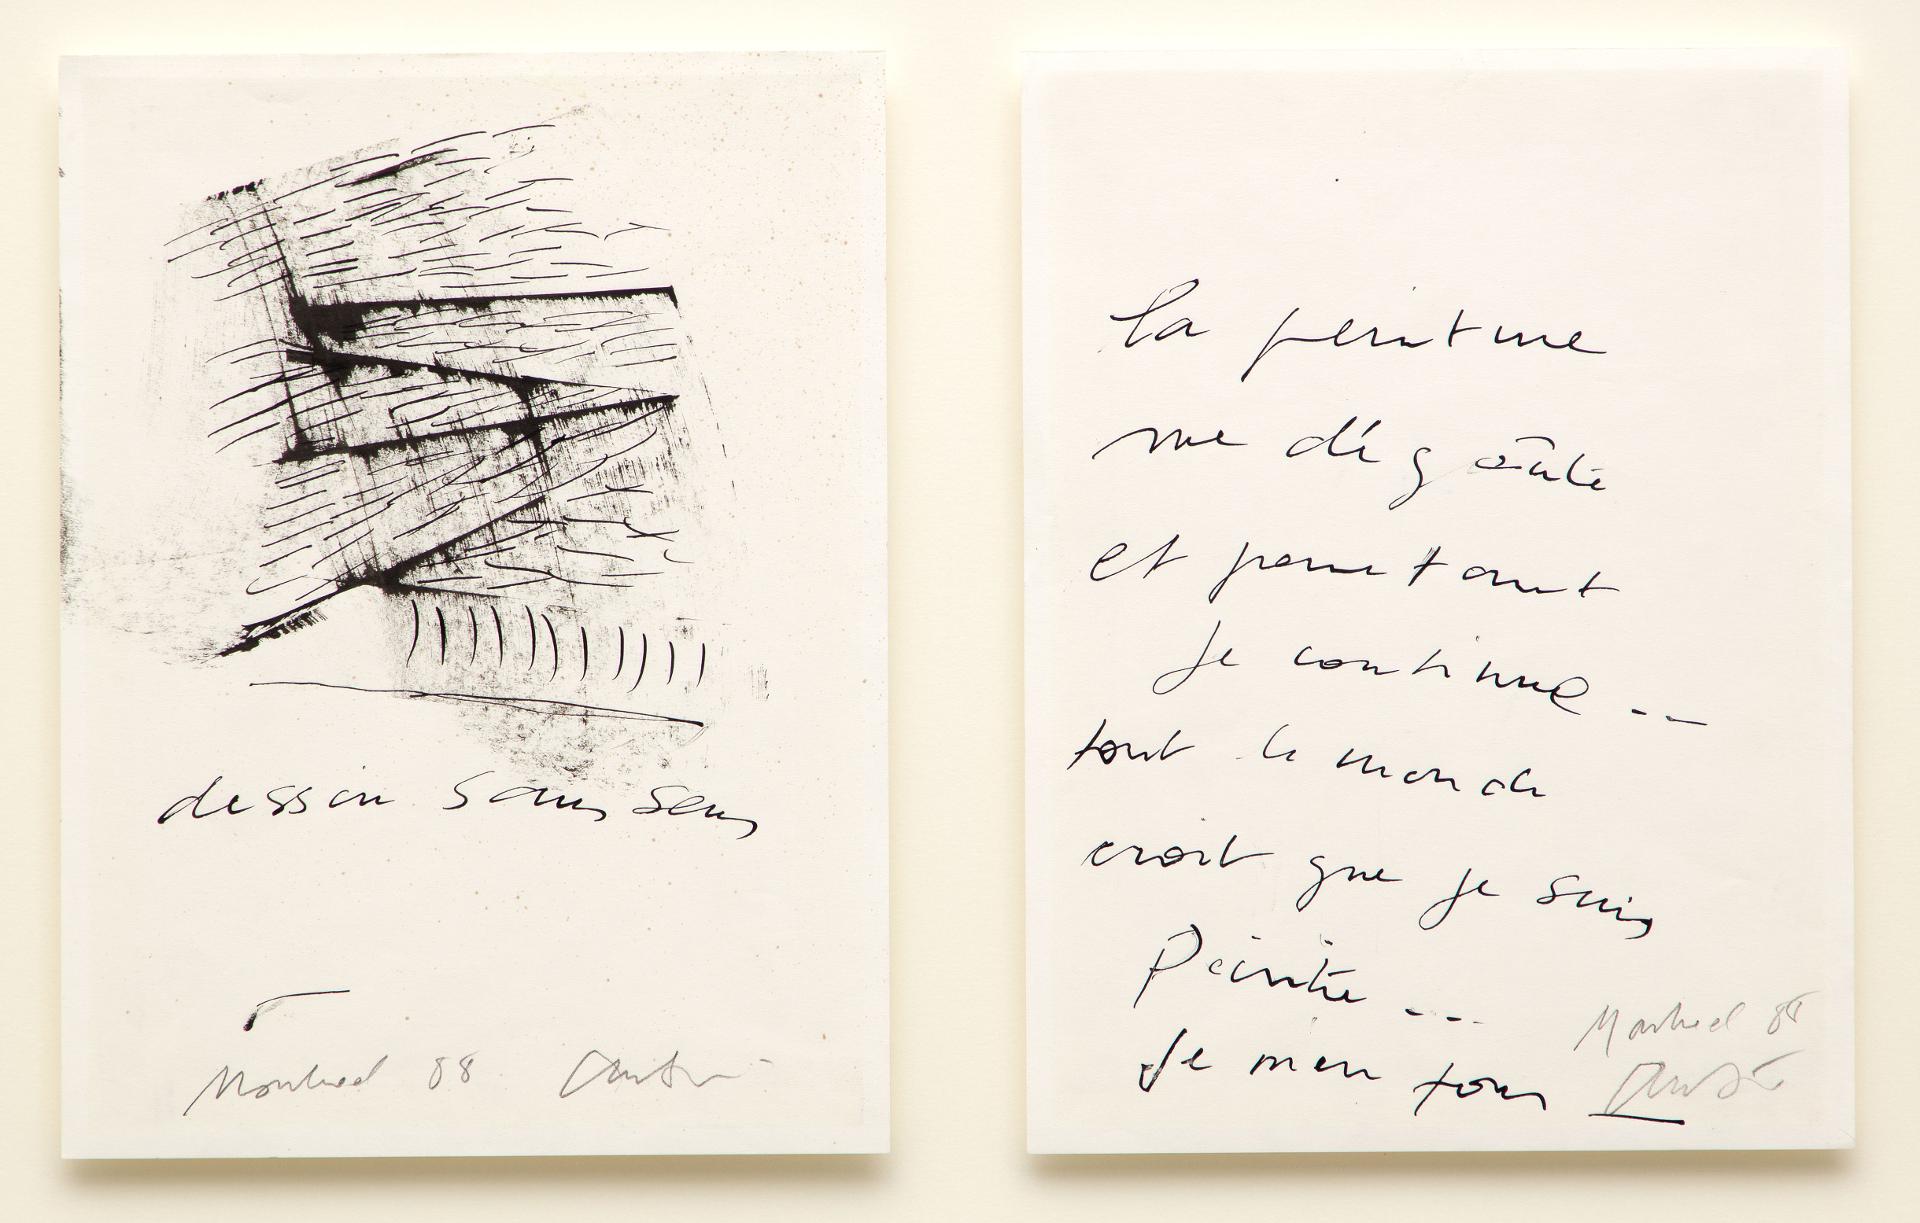 dessin sans sens
Montreal 88
la peinture
me dégoûte
et pourtant
je continue --
tout le monde
croit que je suis
Peintre ---
Je m'en fous
Montreal 88